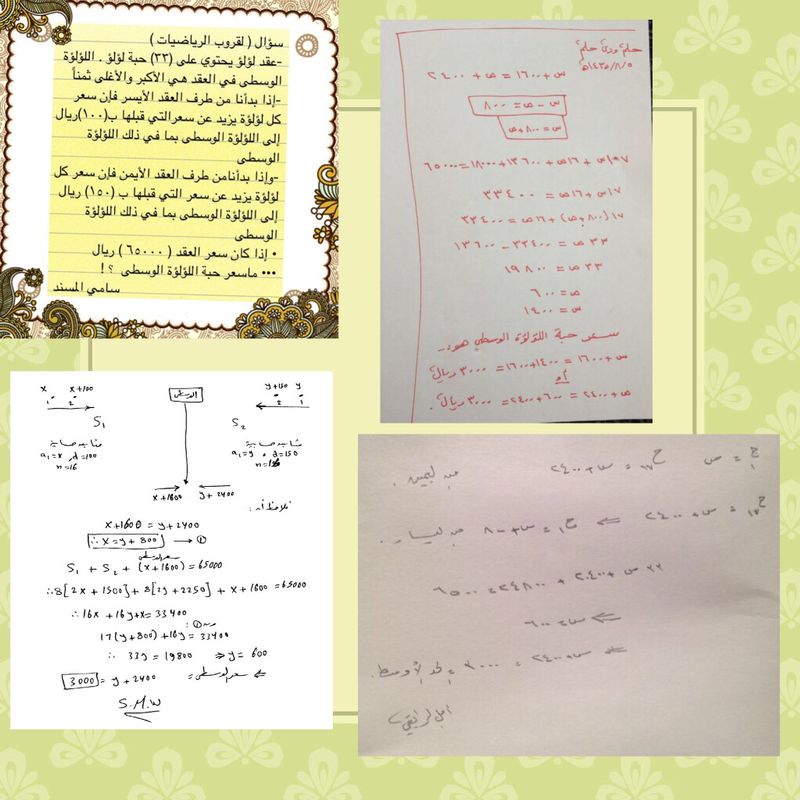 سؤال ( لقروب الرياضيات )
-عقد لؤلؤ يحتوي على (٣٣) حبة لؤلؤ . اللؤلؤة
الوسطى في العقد هي الأكبر والأغلى ثمناً
-إذا بدأنا من طرف العقد الأيسر فإن سعر
كل لؤلؤة يزيد عن سعرالتي قبلها ب(١٠٠)ريال
إلى اللؤلؤة الوسطى بما في ذلك اللؤلؤة
الوسطى
-وإذا بدأنامن طرف العقد الأيمن فإن سعر كل
لؤلؤة يزيد عن سعر التي قبلها ب (١٥٠) ريال
إلى اللؤلؤة الوسطى بما في ذلك اللؤلؤة
الوسطى
• إذا كان سعر العقد ( ٦٥٠٠٠ ) ريال
••• ماسعر حبة اللؤلؤة الوسطى ؟ !
سامي المسند
١٤٣٥/٨/٥هـ
س + ١٦٠٠ = ص + ٢٤٠٠
س - ص = ٨٠٠
س = ٨٠٠ + ص
١٧س + ١٦ص = ٣٣٤٠٠
١٧(٨٠٠ + ص) + ١٦ص = ٣٣٤٠٠
٣٣ص = ٣٣٤٠٠ - ١٣٦٠٠
٣٣ص = ١٩٨٠٠
ص = ٦٠٠
س = ١٤٠٠
سعر حبة اللؤلؤة الوسطى هو
س + ١٦٠٠ = ١٤٠٠ + ١٦٠٠ = ٣٠٠٠ ريال
أو
ص + ٢٤٠٠ = ٦٠٠ + ٢٤٠٠ = ٣٠٠٠ ريال.
x x+100 الوسطى y+150 y
1 2 2 1
S1 S2
متتابعة حسابية متتابعة حسابية
a1=x , d=100 a1=y , d=150
n=16 n=16
x+1600 y+2400
نلاحظ أن:
x+1600 = y+2400
∴ x=y+800 → ①
سعر الوسطى
S1 + S2 + (x+1600) = 65000
∴ 8[2x+1500] + 8[2y+2250] + x+1600 = 65000
∴ 16x+16y+x = 33400
من ①:
17(y+800)+16y = 33400
∴ 33y = 19800 ⇒ y = 600
⇐ سعر الوسطى = y+2400 = 3000
S.M.W
ح١ = س
ح١٧ = س + ٢٤٠٠
ح١٧ = س + ٢٤٠٠ ⇐ ح١ = س + ٨٠٠ من اليسار.
⇐ س = ٦٠٠
⇐ س + ٢٤٠٠ = ٣٠٠٠ الحد الأوسط.